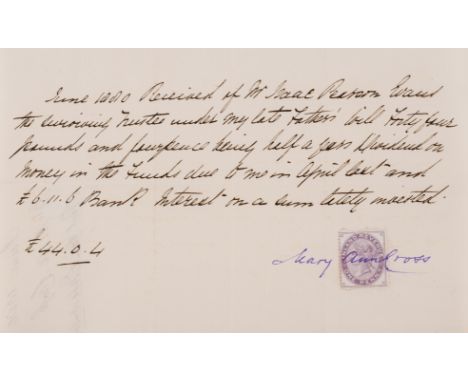 June 1880 Received of Mr Isaac Pearson Evans
the surviving Trustee under my late Father's Will Forty four
pounds and fourpence being half a years Dividend on
Money in the Funds due to me in April last and
£6.11.6 Bank Interest on a sum lately invested.
£44.0.4
Mary Ann Cross